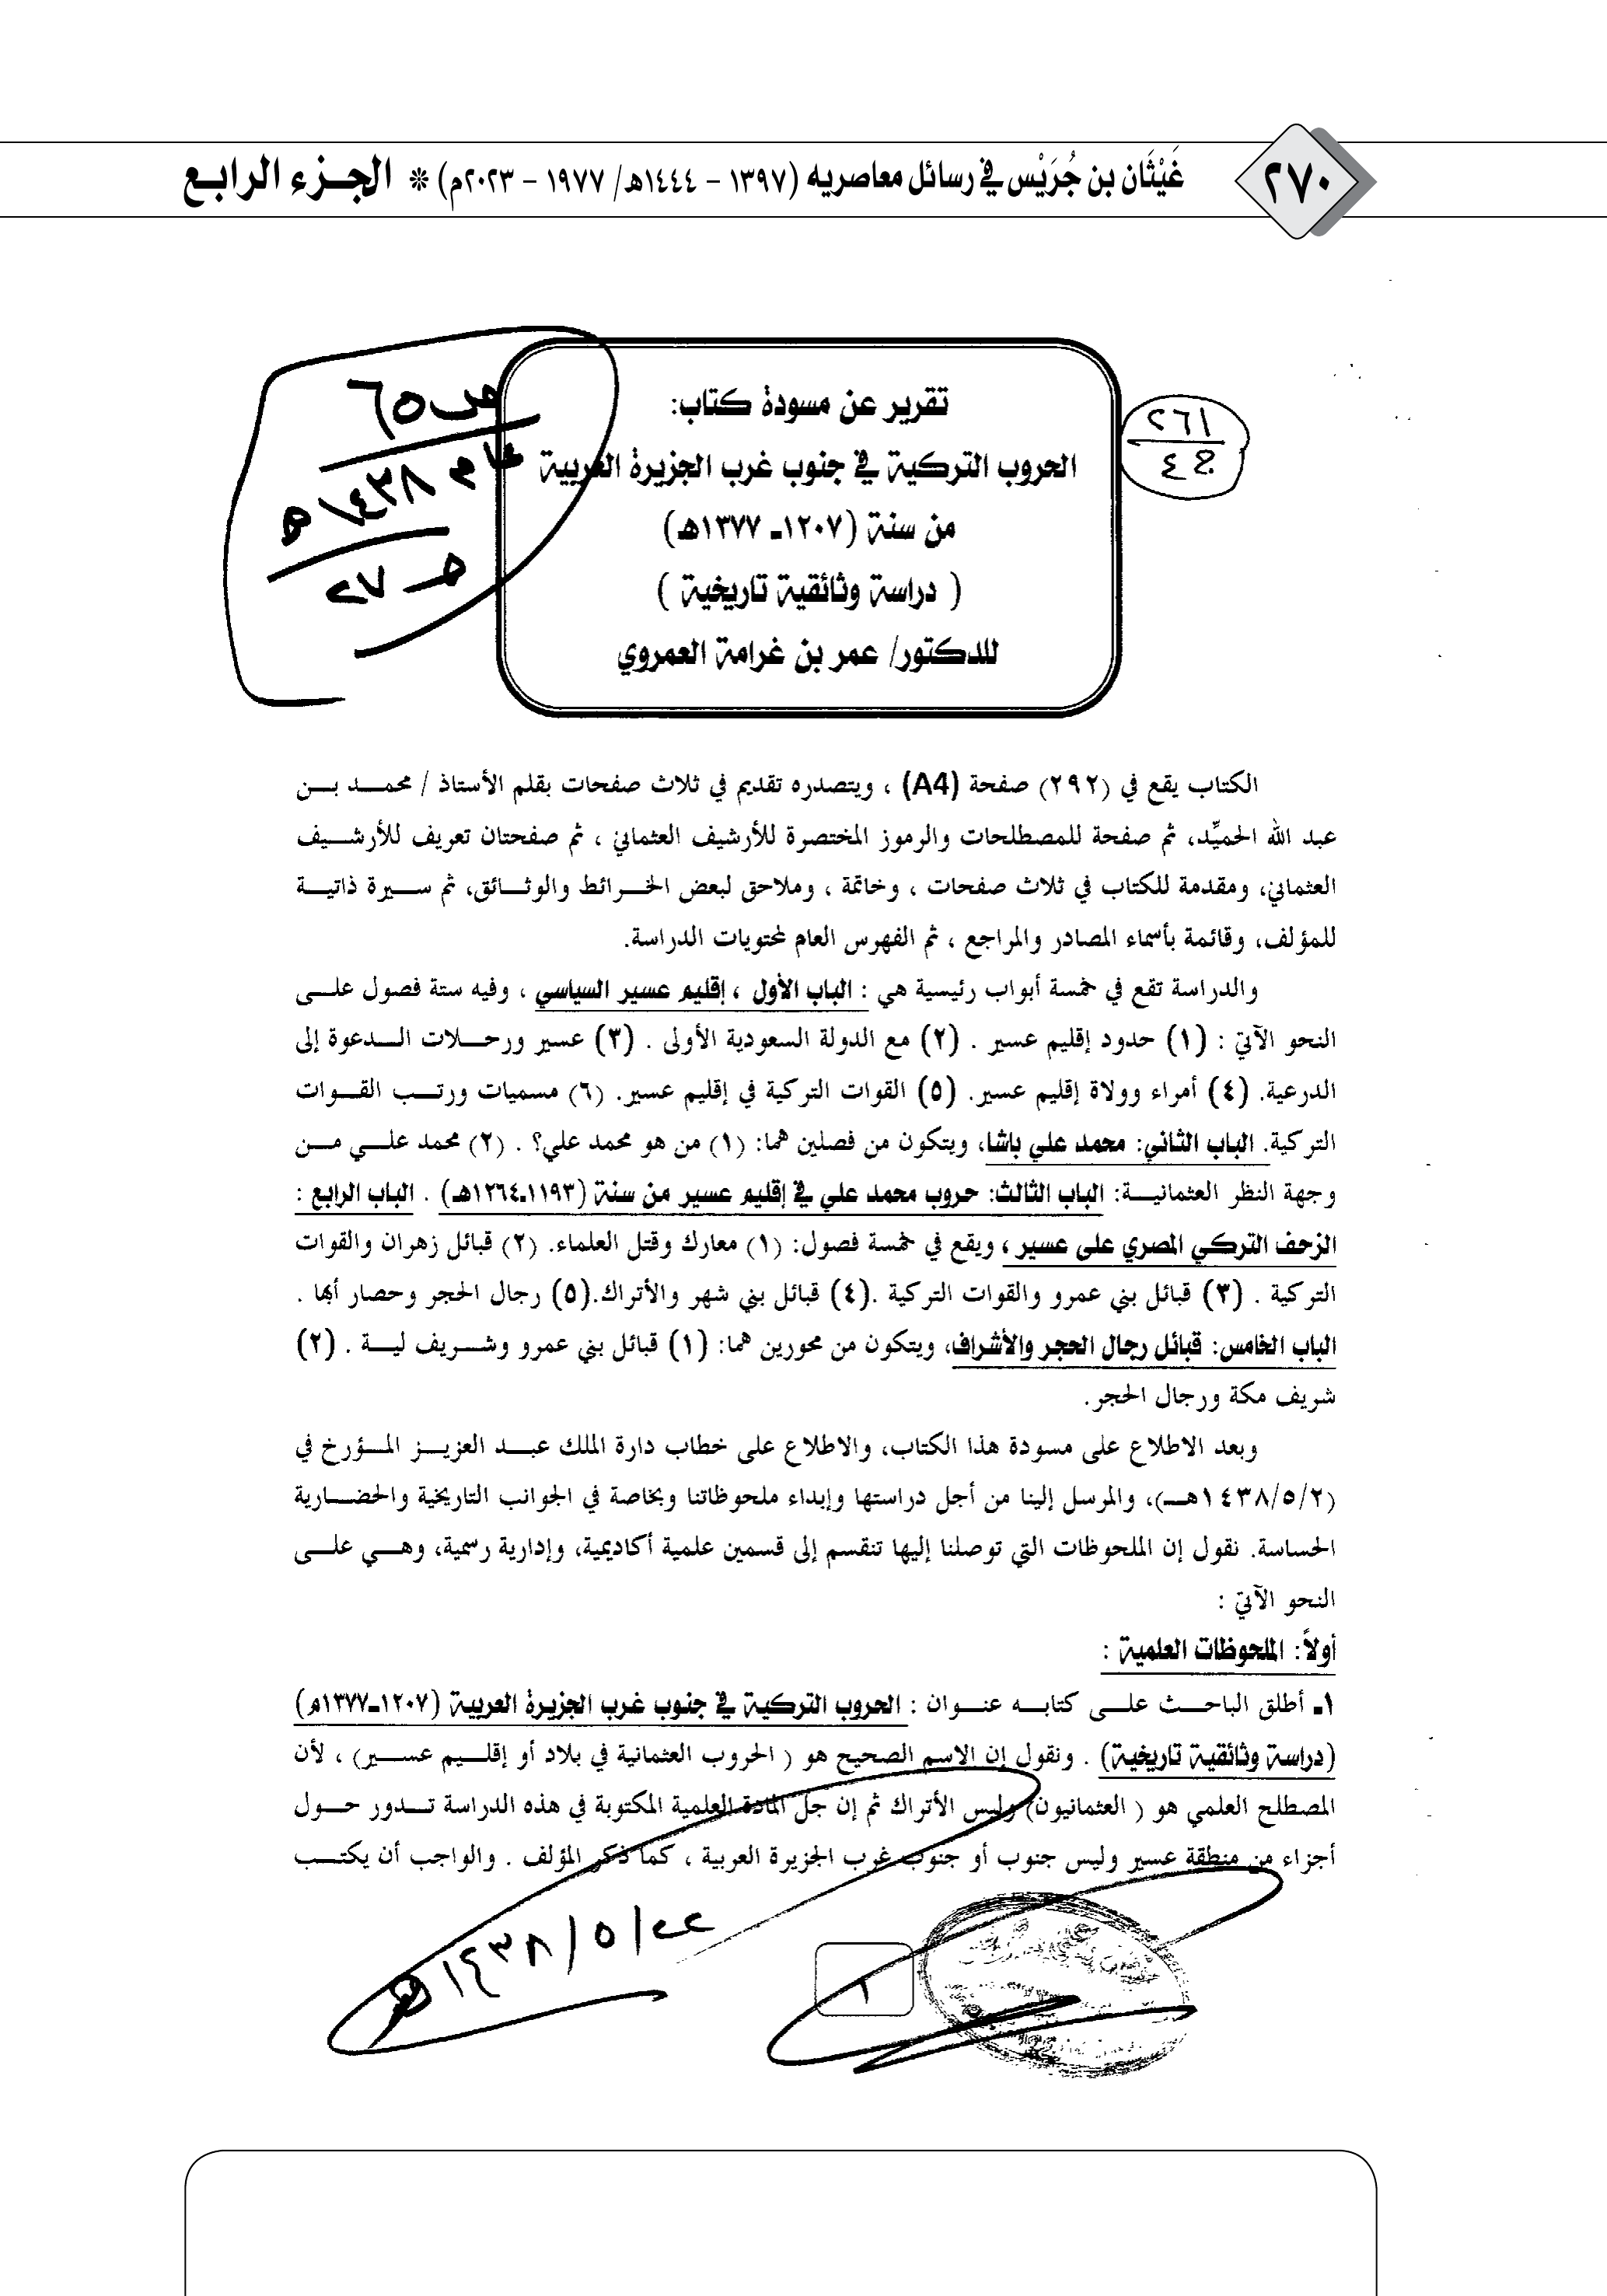 ٢٧٠
غَيْثَان بن جُرَيْس في رسائل معاصريه (١٣٩٧ - ١٤٤٤هـ/ ١٩٧٧ - ٢٠٢٣م) * الجـزء الرابـع
ص ٦٥
عام ١٤٣٨هـ
هـ ٢٧
٢٦١
ج ٤
تقرير عن مسودة كتاب:
الحروب التركية في جنوب غرب الجزيرة العربية
من سنة (١٢٠٧ـ ١٣٧٧هـ)
( دراسة وثائقية تاريخية )
للدكتور/ عمر بن غرامة العمروي
الكتاب يقع في (٢٩٢) صفحة (A4) ، ويتصدره تقديم في ثلاث صفحات بقلم الأستاذ / محمـــد بـــن
عبد الله الحميِّد، ثم صفحة للمصطلحات والرموز المختصرة للأرشيف العثماني ، ثم صفحتان تعريف للأرشـــيف
العثماني، ومقدمة للكتاب في ثلاث صفحات ، وخاتمة ، وملاحق لبعض الخـــرائط والوثـــائق، ثم ســـيرة ذاتيـــة
للمؤلف، وقائمة بأسماء المصادر والمراجع ، ثم الفهرس العام لمحتويات الدراسة.
والدراسة تقع في خمسة أبواب رئيسية هي : الباب الأول ، إقليم عسير السياسي ، وفيه ستة فصول علـــى
النحو الآتي : (١) حدود إقليم عسير . (٢) مع الدولة السعودية الأولى . (٣) عسير ورحـــلات الـــدعوة إلى
الدرعية. (٤) أمراء وولاة إقليم عسير. (٥) القوات التركية في إقليم عسير. (٦) مسميات ورتـــب القـــوات
التركية. الباب الثاني: محمد علي باشا، ويتكون من فصلين هما: (١) من هو محمد علي؟ . (٢) محمد علـــي مـــن
وجهة النظر العثمانيـــة: الباب الثالث: حروب محمد علي في إقليم عسير من سنة (١١٩٣ـ١٢٦٤هـ) . الباب الرابع :
الزحف التركي المصري على عسير ، ويقع في خمسة فصول: (١) معارك وقتل العلماء. (٢) قبائل زهران والقوات
التركية . (٣) قبائل بني عمرو والقوات التركية .(٤) قبائل بني شهر والأتراك.(٥) رجال الحجر وحصار أبها .
الباب الخامس: قبائل رجال الحجر والأشراف، ويتكون من محورين هما: (١) قبائل بني عمرو وشـــريف ليـــة . (٢)
شريف مكة ورجال الحجر.
وبعد الاطلاع على مسودة هذا الكتاب، والاطلاع على خطاب دارة الملك عبـــد العزيـــز المـــؤرخ في
(١٤٣٨/٥/٢هـــ)، والمرسل إلينا من أجل دراستها وإبداء ملحوظاتنا وبخاصة في الجوانب التاريخية والحضـــارية
الحساسة. نقول إن الملحوظات التي توصلنا إليها تنقسم إلى قسمين علمية أكاديمية، وإدارية رسمية، وهـــي علـــى
النحو الآتي :
أولاً: الملحوظات العلمية :
١ـ أطلق الباحـــث علـــى كتابـــه عنـــوان : الحروب التركية في جنوب غرب الجزيرة العربية (١٢٠٧ـ١٣٧٧م)
(دراسة وثائقية تاريخية) . ونقول إن الاسم الصحيح هو ( الحروب العثمانية في بلاد أو إقلـــيم عســـير) ، لأن
المصطلح العلمي هو ( العثمانيون) وليس الأتراك ثم إن جل المادة العلمية المكتوبة في هذه الدراسة تـــدور حـــول
أجزاء من منطقة عسير وليس جنوب أو جنوب غرب الجزيرة العربية ، كما ذكر المؤلف . والواجب أن يكتـــب
١٤٣٨/٥/٢٢هـ
١